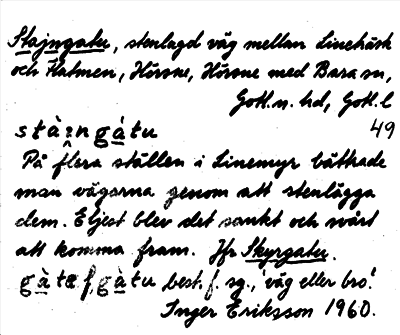 Stajngatu, stenlagd väg mellan Linehäsk
och Hatmen, Hörsne, Hörsne med Bara sn,
Gotl.n. hd, Gotl.l
49
stàingàtu
På flera ställen i Linemyr bättrade
man vägarna genom att stenlägga
dem. Eljest blev det sankt och svårt
att komma fram. Jfr Skyrgatu.
gàte f. gàtu best. f. sg., 'väg eller bro'.
Inger Eriksson 1960.